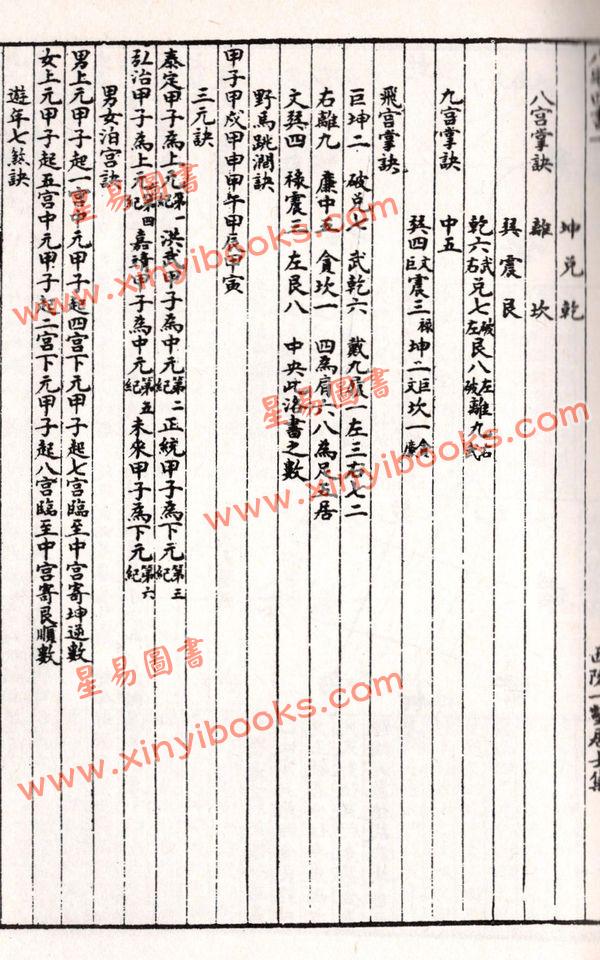 坤兌乾
八宮掌訣 離 坎
巽震艮
乾六武右兌七破左艮八左破離九右武
九宮掌訣 中五
巽四文巨震三祿坤二巨文坎一貪廉
飛宮掌訣
巨坤二 破兌七 武乾六 戴九履一左三右七二
右離九 廉中五 貪坎一 四為肩六八為足五居
文巽四 祿震三 左艮八 中央此洛書之數
野馬跳澗訣
甲子甲戌甲申甲午甲辰甲寅
三元訣
泰定甲子為上元第一紀洪武甲子為中元第二紀正統甲子為下元第三紀
弘治甲子為上元第四紀嘉靖甲子為中元第五紀未來甲子為下元第六紀
男女泊宮訣
男上元甲子起一宮中元甲子起四宮下元甲子起七宮臨至中宮寄坤逆數
女上元甲子起五宮中元甲子起二宮下元甲子起八宮臨至中宮寄艮順數
遊年七煞訣
星易圖書
www.xinyibooks.com
星易圖書
www.xinyibooks.com
星易圖書
www.xinyibooks.com